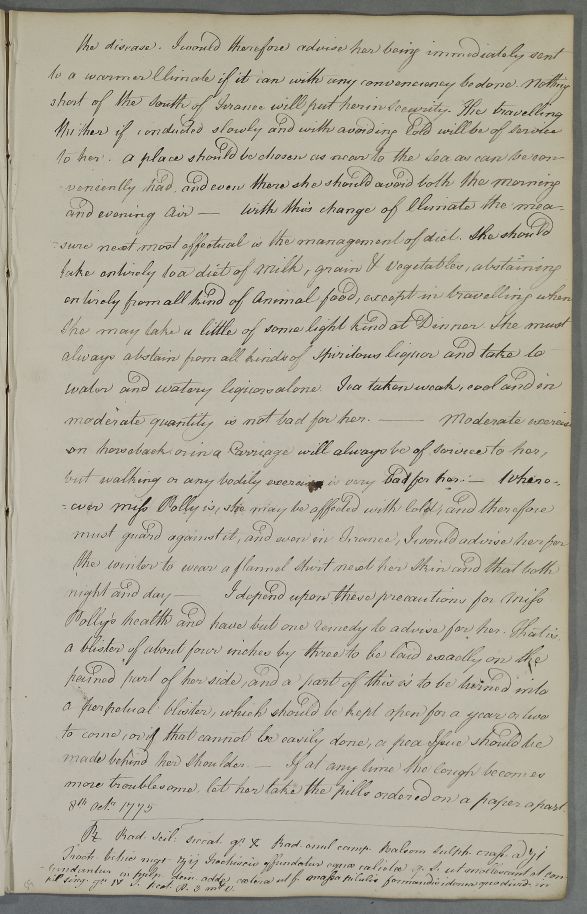 the disease. I would therefore advise her being immediately sent
to a warmer Climate if it can with any conveniency be done. Nothing
short of the South of France will put her in security. The travelling
thither if conducted slowly and with avoiding Cold will be of service
to her. a place should be chosen as near to the Sea as can be con-
-veniently had, and even there she should avoid both the morning
and evening air — With this change of Climate the mea-
-sure next most effectual is the management of diet. She should
take entirely to a diet of Milk, grain & Vegetables, abstaining
entirely from all kind of Animal food, except in travelling when
She may take a little of some light kind at Dinner She must
always abstain from all kinds of Spiritous liquor and take to
water and watery liquors alone. Tea taken weak, cool and in
moderate quantity is not bad for her. — Moderate exercise
on horseback or in a Carriage will always be of service to her,
but walking or any bodily exercise is very bad for her. — Where-
-ever Miss Polly is, she may be affected with Cold, and therefore
must guard against it, and even in France, I would advise her for
the winter to wear a flannel Shirt next her Skin and that both
night and day — I depend upon these precautions for Miss
Polly's health and have but one remedy to advise for her. That is
a blister of about four inches by three to be laid exactly on the
pained part of her side, and a part of this is to be turned into
a perpetual blister, which should be kept open for a year or two
to come, or if that cannot be easily done, a pea Issue should be
made behind her Shoulder. — If at any time the Cough becomes
more troublesome, let her take the pills ordered on a paper apart.
8th Octr. 1775
℞ Rad. Scil. siccat. gr. X Rad. enul. camp. Balsam Sulph. crass. a ʒi